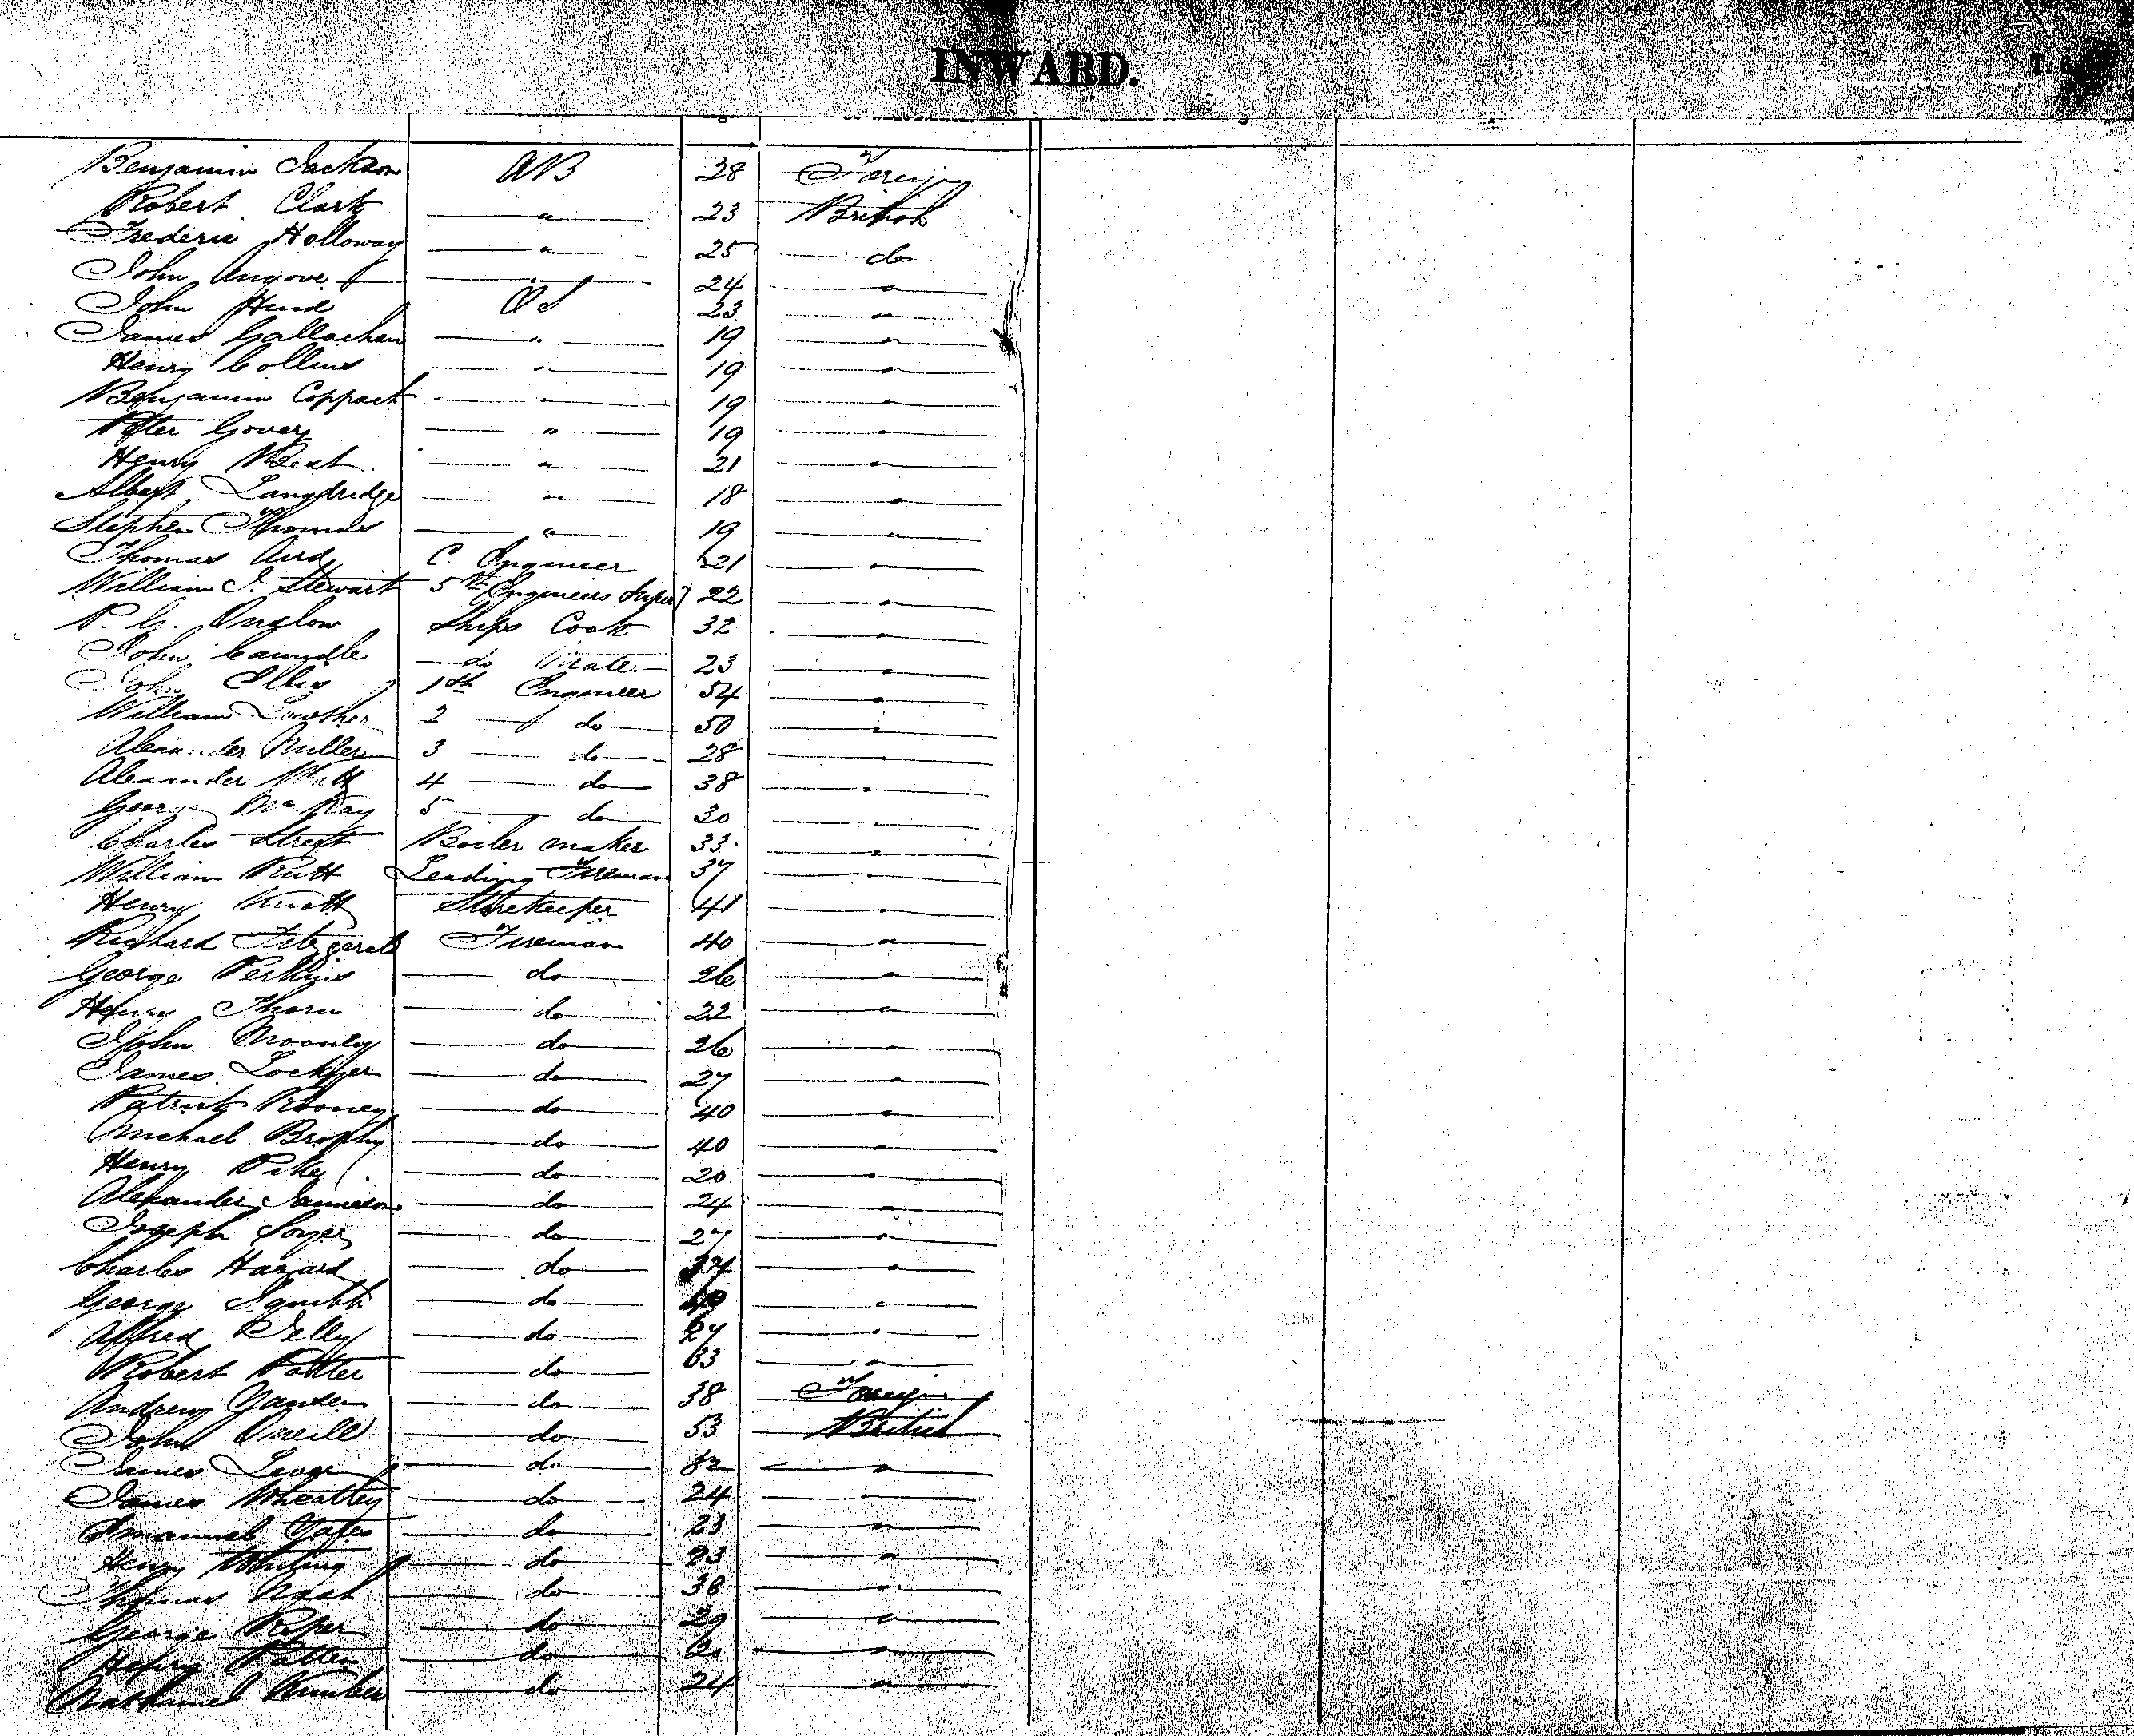 INWARD.
Benjamin Jackson AB 28 Foreign
Robert Clark " 23 British
Frederic Holloway " 25 do
John Angove " 24 "
John Hind OS 23 "
James Gallachan " 19 "
Henry Collins " 19 "
Benjamin Coppack " 19 "
Peter Govery " 19 "
Henry " 21 "
Albert Langdridge " 18 "
Stephen Thomas " 19 "
Thomas Aird C. Engineer 21 "
William J. Stewart 5th Engineers 22 "
P. G. Onslow Ships Cook 32 "
John Caundle do Mate 23 "
John Ellis 1st Engineer 54 "
William Lowther 2 do 50 "
Alexander Miller 3 do 28 "
Alexander 4 do 38 "
George McKay 5 do 30 "
Charles Street Boiler maker 33 "
William Rutt Leading Fireman 37 "
Henry Knott Storekeeper 41 "
Richard Fitzgerald Fireman 40 "
George Perkins do 26 "
Henry Thorn do 22 "
John Mooney do 26 "
James Lockyer do 27 "
Patrick Rooney do 40 "
Michael Brophy do 40 "
Henry Pike do 20 "
Alexander Jamieson do 24 "
Joseph do 27 "
Charles Hazard do 34 "
George Squibb do 40 "
Alfred do "
Robert Potter do 33 "
Andrew Yansen do 38 Foreign
John Oneill do 53 British
James do 32 "
James Wheatley do 24 "
Emanuel Yates do 23 "
Henry Whiting do 23 "
Thomas Nash do 36 "
George Roper do 29 "
Henry Patten do "
Nathaniel Kimber do 24 "